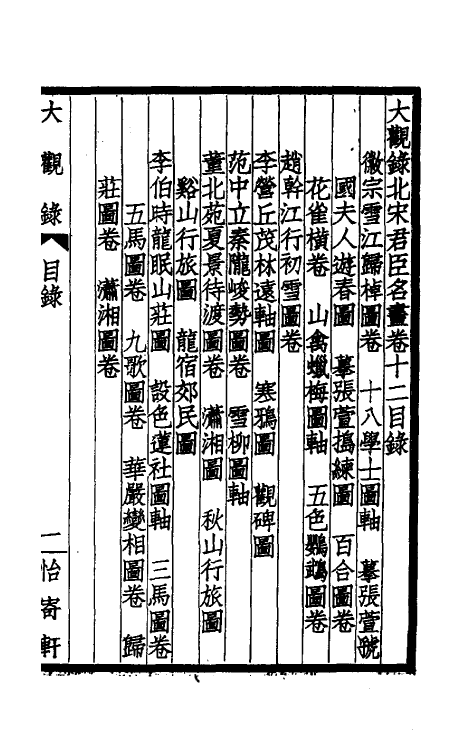 大觀錄北宋君臣名畫卷十二目錄
徽宗雪江歸棹圖卷　十八學士圖軸　摹張萱虢
國夫人遊春圖　摹張萱搗練圖　百合圖卷
花雀橫卷　山禽蠟梅圖軸　五色鸚鵡圖卷
趙幹江行初雪圖卷
李營丘茂林遠軸圖　寒鴉圖　觀碑圖
范中立秦隴峻勢圖卷　雪柳圖軸
董北苑夏景待渡圖卷　瀟湘圖　秋山行旅圖
谿山行旅圖　龍宿郊民圖
李伯時龍眠山莊圖　設色蓮社圖軸　三馬圖卷
五馬圖卷　九歌圖卷　華嚴變相圖卷　歸
莊圖卷　瀟湘圖卷
大觀錄　目錄　二　怡寄軒